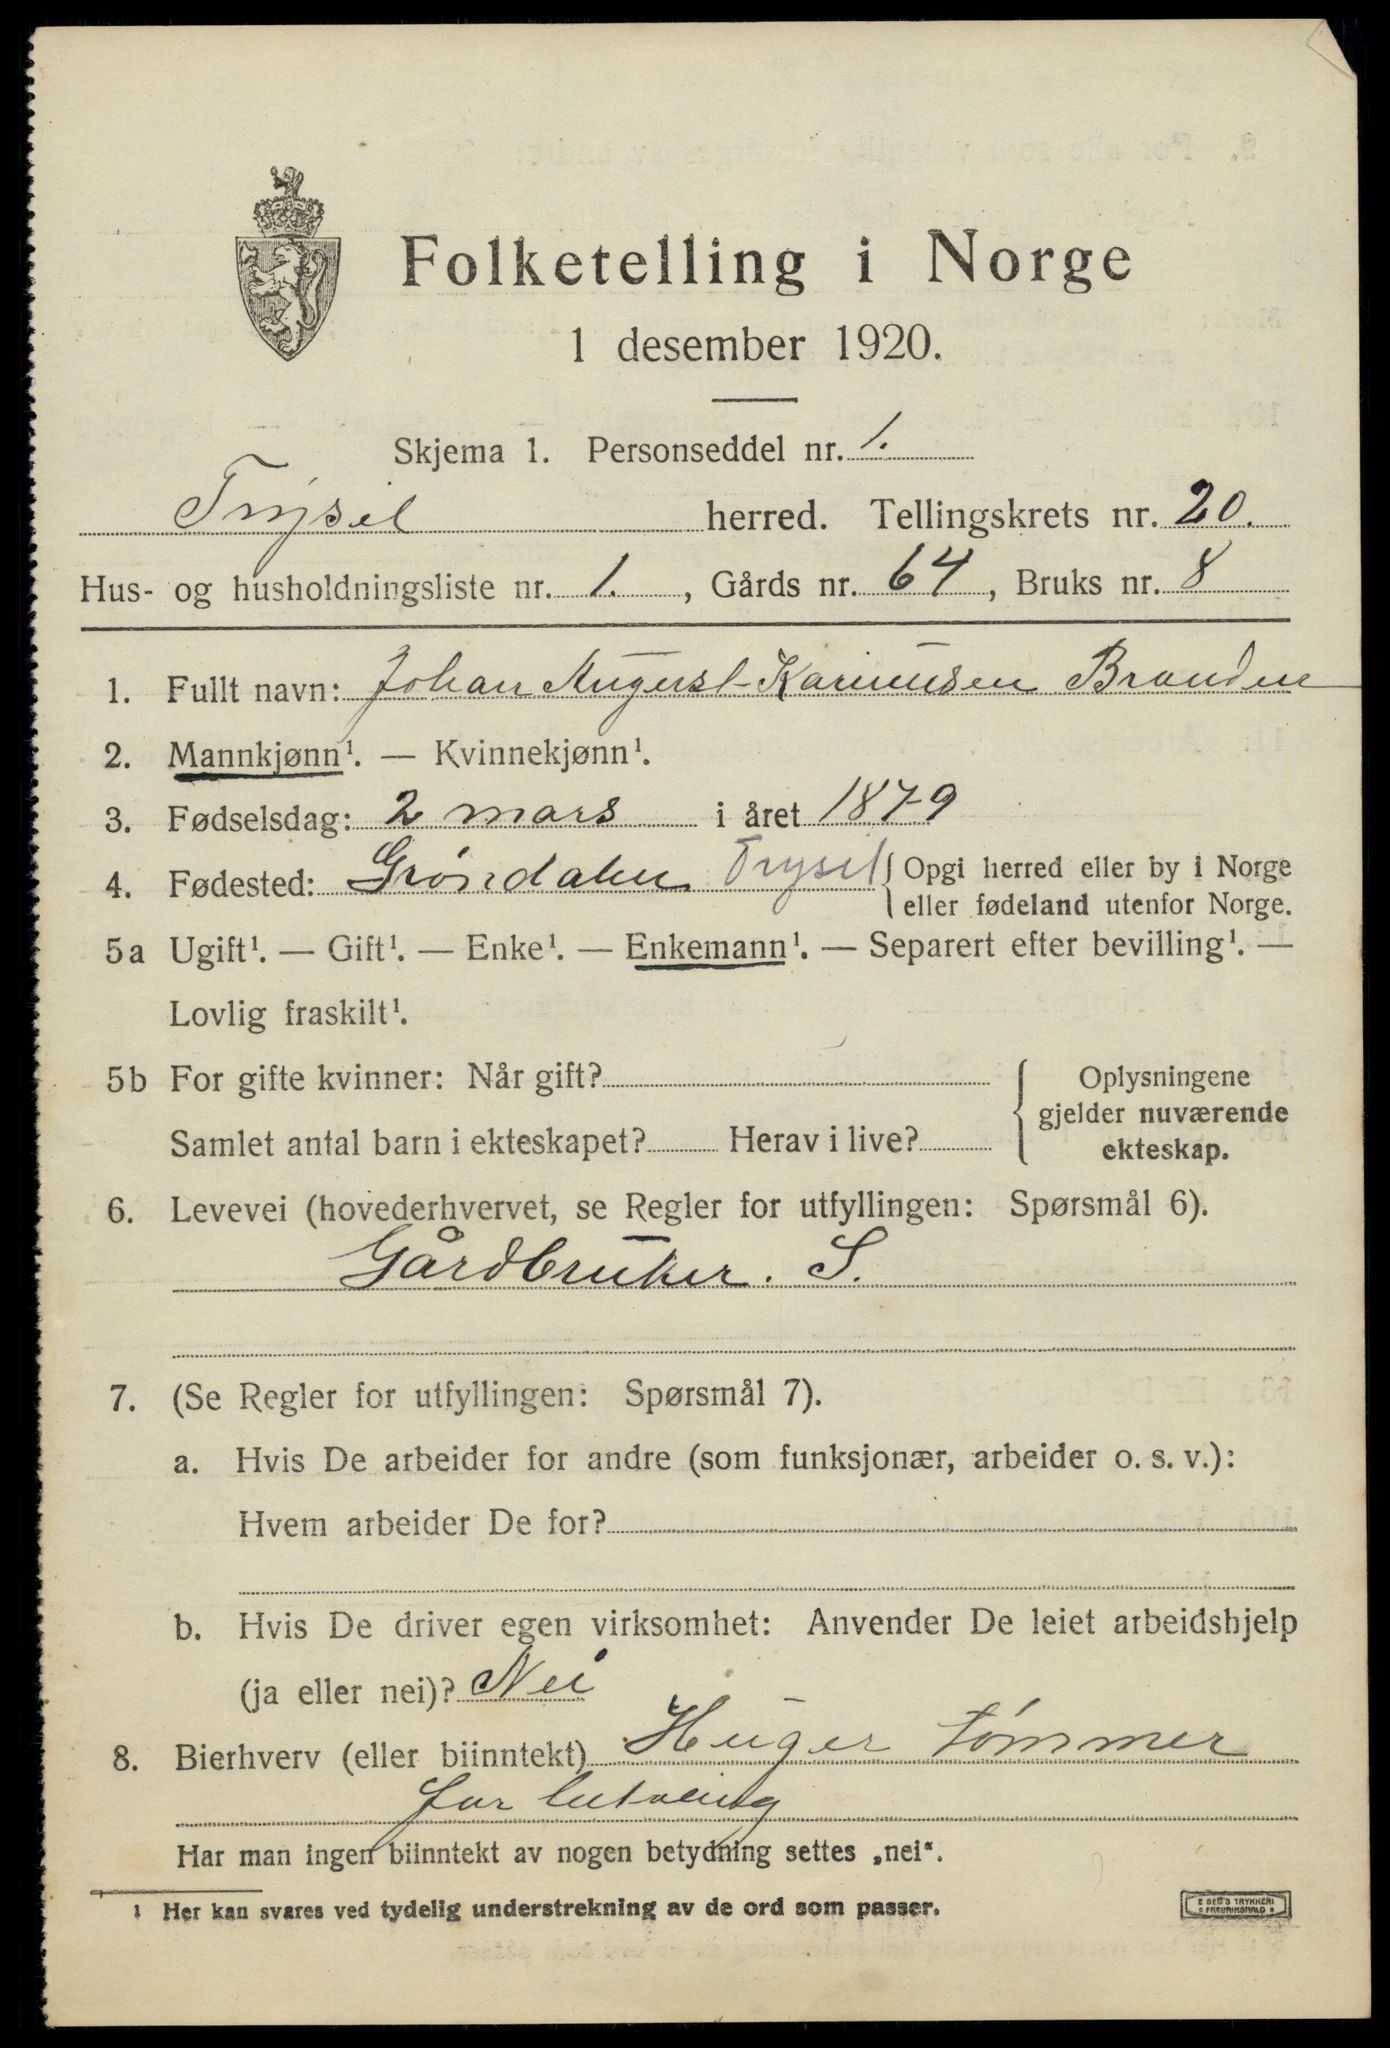 Folketelling i Norge
1 desember 1920.
Skjema 1. Personseddel nr. 1.
Trysil herred. Tellingskrets nr. 20.
Hus- og husholdningsliste nr. 1., Gårds nr. 64, Bruks nr. 8
1. Fullt navn: Johan August Branden
2. Mannkjønn¹. — Kvinnekjønn¹.
3. Fødselsdag: 2 mars i året 1879
4. Fødested: Grøndalen Trysil { Opgi herred eller by i Norge
eller fødeland utenfor Norge.
5a Ugift¹. — Gift¹. — Enke¹. — Enkemann¹. — Separert efter bevilling¹. —
Lovlig fraskilt¹.
5b For gifte kvinner: Når gift? { Oplysningene
gjelder nuværende
Samlet antal barn i ekteskapet? Herav i live? ekteskap.
6. Levevei (hovederhvervet, se Regler for utfyllingen: Spørsmål 6).
Gårdbruker. S.
7. (Se Regler for utfyllingen: Spørsmål 7).
a. Hvis De arbeider for andre (som funksjonær, arbeider o. s. v.):
Hvem arbeider De for?
b. Hvis De driver egen virksomhet: Anvender De leiet arbeidshjelp
(ja eller nei)? Nei
8. Bierhverv (eller biinntekt) Huger tømmer
for
Har man ingen biinntekt av nogen betydning settes „nei“.
1 Her kan svares ved tydelig understrekning av de ord som passer.
E SEM'S TRYKKERI
FREDRIKSHALD